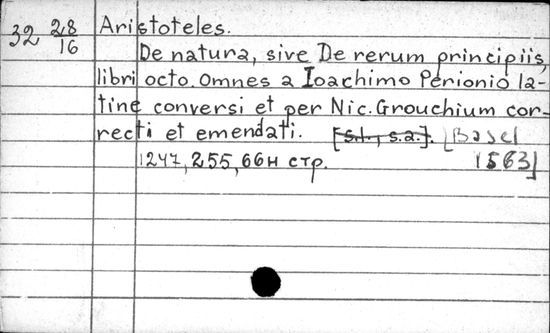 32 28/16 Aristoteles.
De natura, sive De rerum principiis,
libri octo. Omnes a Ioachimo Perionio la-
tine conversi et per Nic. Grouchium cor-
recti et emendati. [s.l., s.a.]. [Basel
1247, 255, 66н стр. 1563]